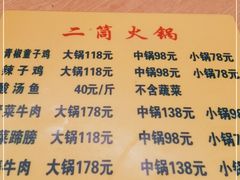 二筒火锅
青椒童子鸡 大锅118元 中锅98元 小锅78元
辣子鸡 大锅118元 中锅98元 小锅78
酸汤鱼 40元/斤 不含蔬菜
菜牛肉 大锅178元 中锅138元 小锅98
菜蹄膀 大锅118元 中锅98元 小锅
牛肉 大锅178元 中锅138元 小锅